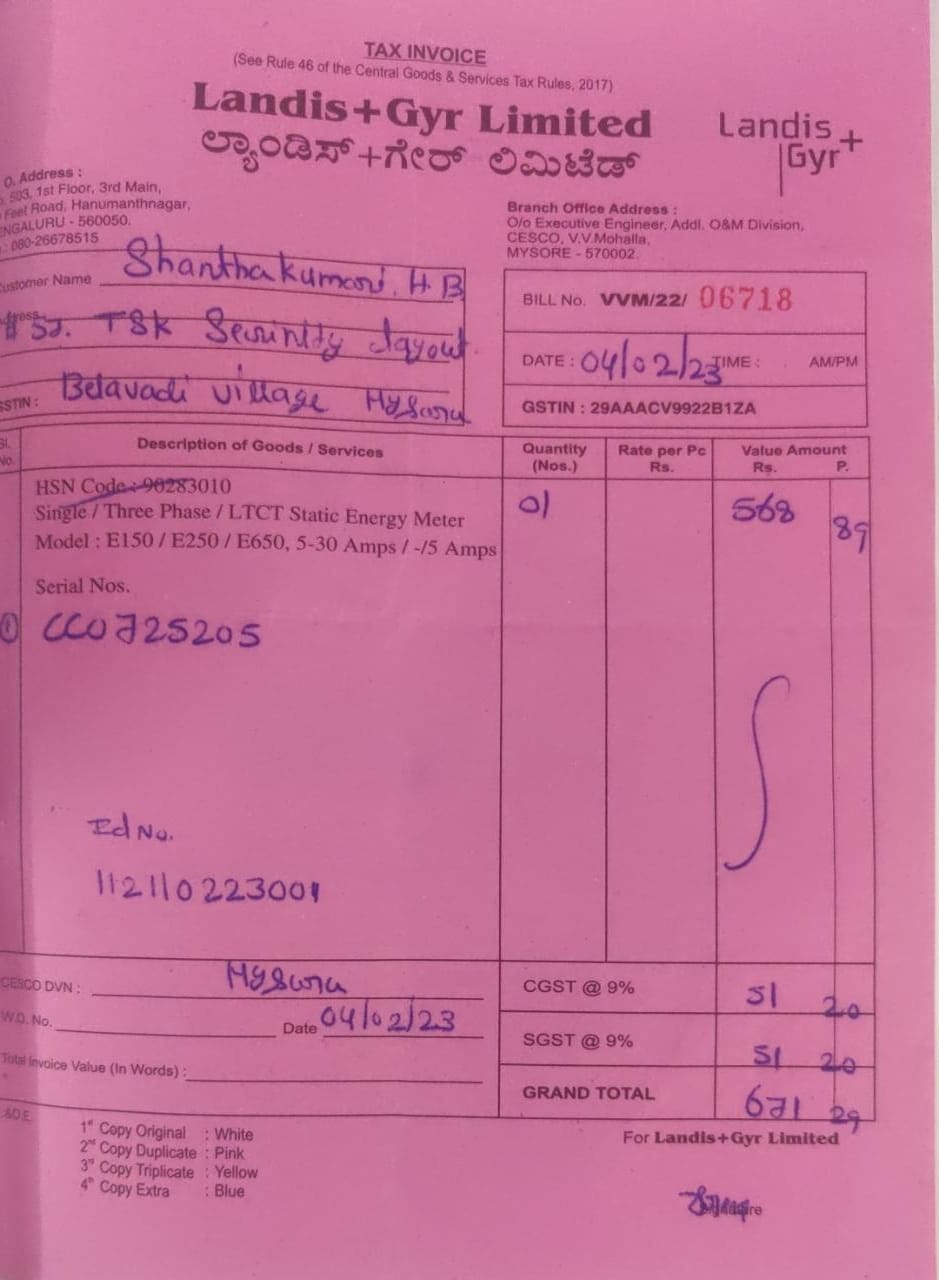 TAX INVOICE
(See Rule 46 of the Central Goods & Services Tax Rules, 2017)
Landis+Gyr Limited
ಲ್ಯಾಂಡಿಸ್+ಗೇರ್ ಲಿಮಿಟೆಡ್
Landis
Gyr+
O. Address :
503, 1st Floor, 3rd Main,
Feet Road, Hanumanthnagar,
NGALURU - 560050.
: 080-26678515
Branch Office Address :
O/o Executive Engineer, Addl. O&M Division,
CESCO, V.V.Mohalla,
MYSORE - 570002.
ustomer Name Shanthakumari. H.B
TSK Security layout
GSTIN : Belavadi village Mysuru
BILL No. VVM/22/ 06718
DATE : 04/02/23 TIME : AM/PM
GSTIN : 29AAACV9922B1ZA
Sl. No. Description of Goods / Services Quantity (Nos.) Rate per Pc Rs. Value Amount Rs. P.
HSN Code : 90283010 01 568 89
Single / Three Phase / LTCT Static Energy Meter
Model : E150 / E250 / E650, 5-30 Amps / -/5 Amps
Serial Nos.
① CCO725205
Ed No.
112110223001
CESCO DVN : Mysuru
W.O. No. Date 04/02/23
Total Invoice Value (In Words) :
CGST @ 9% 51 20
SGST @ 9% 51 20
GRAND TOTAL 671 29
&O.E
1st Copy Original : White
2nd Copy Duplicate : Pink
3rd Copy Triplicate : Yellow
4th Copy Extra : Blue
For Landis+Gyr Limited